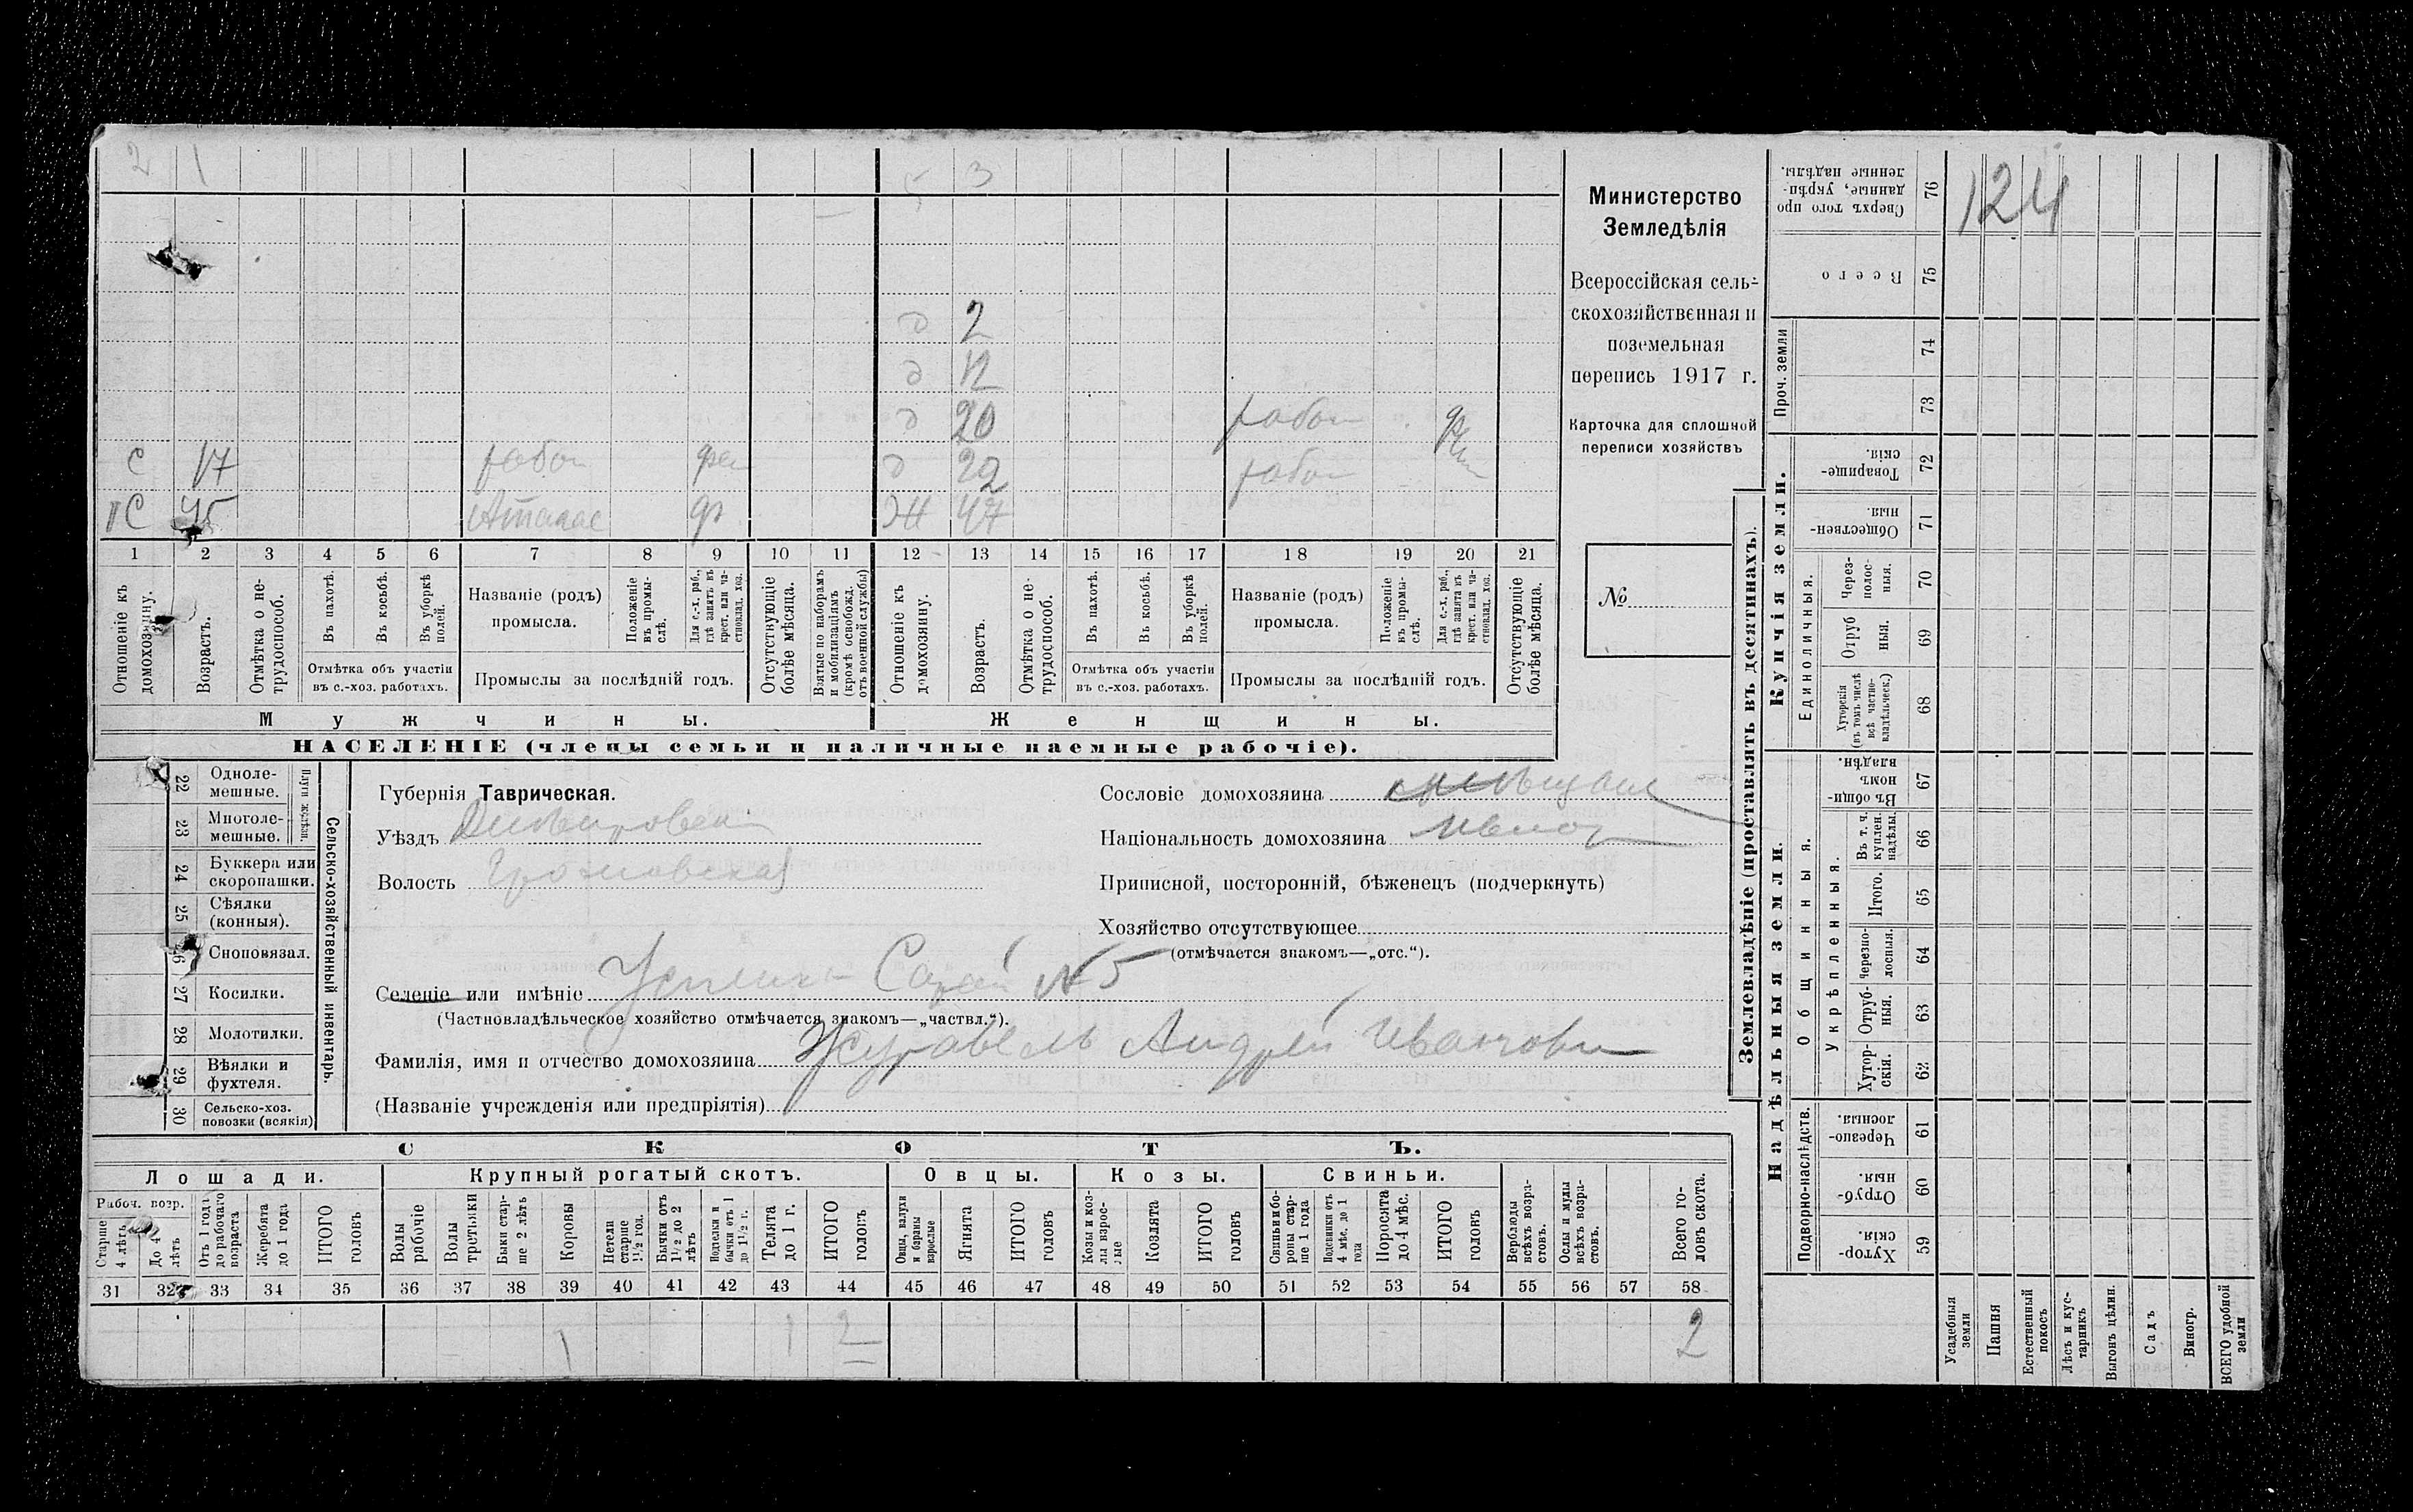 2 1 5 3
д 2
д 12
д 20 работ
с 17 работ д 22 работ
С 45 ф ж 47
1 2 3 4 5 6 7 8 9 10 11 12 13 14 15 16 17 18 19 20 21
Отношеніе къ домохозяину.
Возрастъ.
Отмѣтка о не-трудоспособ.
Въ пахотѣ.
Въ косьбѣ.
Въ уборкѣ полей.
Отмѣтка объ участіи
въ с.-хоз. работахъ.
Названіе (родъ)
промысла.
Положеніе въ промы-слѣ.
Для с.-х. раб., гдѣ занятъ въ крест. или ча-стновлад. хоз.
Промыслы за послѣдній годъ.
Отсутствующіе болѣе мѣсяца.
Взятые по наборамъ и мобилизаціямъ (кромѣ освобожд. отъ военной службы)
Отношеніе къ домохозяину.
Возрастъ.
Отмѣтка о не-трудоспособ.
Въ пахотѣ.
Въ косьбѣ.
Въ уборкѣ полей.
Отмѣтка объ участіи
въ с.-хоз. работахъ.
Названіе (родъ)
промысла.
Положеніе въ промы-слѣ.
Для с.-х. раб., гдѣ занята въ крест. или ча-стновлад. хоз.
Промыслы за послѣдній годъ.
Отсутствующіе болѣе мѣсяца.
Мужчины.
Женщины.
НАСЕЛЕНІЕ (члены семьи и наличные наемные рабочіе).
Министерство
Земледѣлія
Всероссійская сель-
скохозяйственная и
поземельная
перепись 1917 г.
Карточка для сплошной
переписи хозяйствъ
№
22 Одноле-
мешные.
23 Многоле-
мешные.
24 Буккера или
скоропашки.
25 Сѣялки
(конныя).
26 Сноповязал.
27 Косилки.
28 Молотилки.
29 Вѣялки и
фухтеля.
30 Сельско-хоз.
повозки (всякія)
Сельско-хозяйственный инвентарь.
Губернія Таврическая.
Уѣздъ Днѣпровскій
Волость Громовская
Сословіе домохозяина
Національность домохозяина
Приписной, посторонній, бѣженецъ (подчеркнуть)
Хозяйство отсутствующее
(отмѣчается знакомъ—„отс.“).
Селеніе или имѣніе Сарай №5
(Частновладѣльческое хозяйство отмѣчается знакомъ—„частвл.“).
Фамилія, имя и отчество домохозяина Журавель Андрей Иванови
(Названіе учрежденія или предпріятія)
СКОТЪ.
Лошади. Крупный рогатый скотъ. Овцы. Козы. Свиньи.
Рабоч. возр.
Старше 4 лѣтъ
До 4 лѣтъ
Отъ 1 года до рабочаго возраста
Жеребята до 1 года
ИТОГО головъ
Волы рабочіе
Волы третьяки
Быки стар-ше 2 лѣтъ
Коровы
Нетели старше 1½ год.
Бычки отъ 1½ до 2 лѣтъ
Нетелки и бычки отъ 1 до 1½ г.
Телята до 1 г.
ИТОГО головъ
Овцы, валухи и бараны взрослые
Ягнята
ИТОГО головъ
Козы и коз-лы взрос-лые
Козлята
ИТОГО головъ
Свиньи и бо-ровы стар-ше 1 года
Подсвинки отъ 4 мѣс. до 1 года
Поросята до 4 мѣс.
ИТОГО головъ
Верблюды всѣхъ возра-стовъ.
Ослы и мулы всѣхъ возра-стовъ.
Всего го-ловъ скота.
31 32 33 34 35 36 37 38 39 40 41 42 43 44 45 46 47 48 49 50 51 52 53 54 55 56 57 58
1 1 2 2
Землевладѣніе (проставлять въ десятинахъ).
Сверхъ того про-данные, укрѣп-ленные надѣлы. 76 124
Всего 75
Проч. земли 74
73
Купчія земли.
Товарище-скія. 72
Обществен-ныя. 71
Единоличныя.
Через-полос-ныя. 70
Отруб-ныя. 69
Хуторскія (въ томъ числѣ всѣ частно-владѣльческ.) 68
Надѣльныя земли.
Общинныя.
Въ общи-номъ владѣн. 67
Укрѣпленныя.
Въ т. ч. куплен. надѣлы. 66
Итого. 65
Черезпо-лосныя. 64
Отруб-ныя. 63
Хутор-скія. 62
Подворно-наслѣдств.
Черезпо-лосныя. 61
Отруб-ныя. 60
Хутор-скія. 59
Усадебныя земли
Пашня
Естественный покосъ
Лѣсъ и кус-тарникъ
Выгонъ цѣлин.
Садъ
Виногр.
ВСЕГО удобной земли